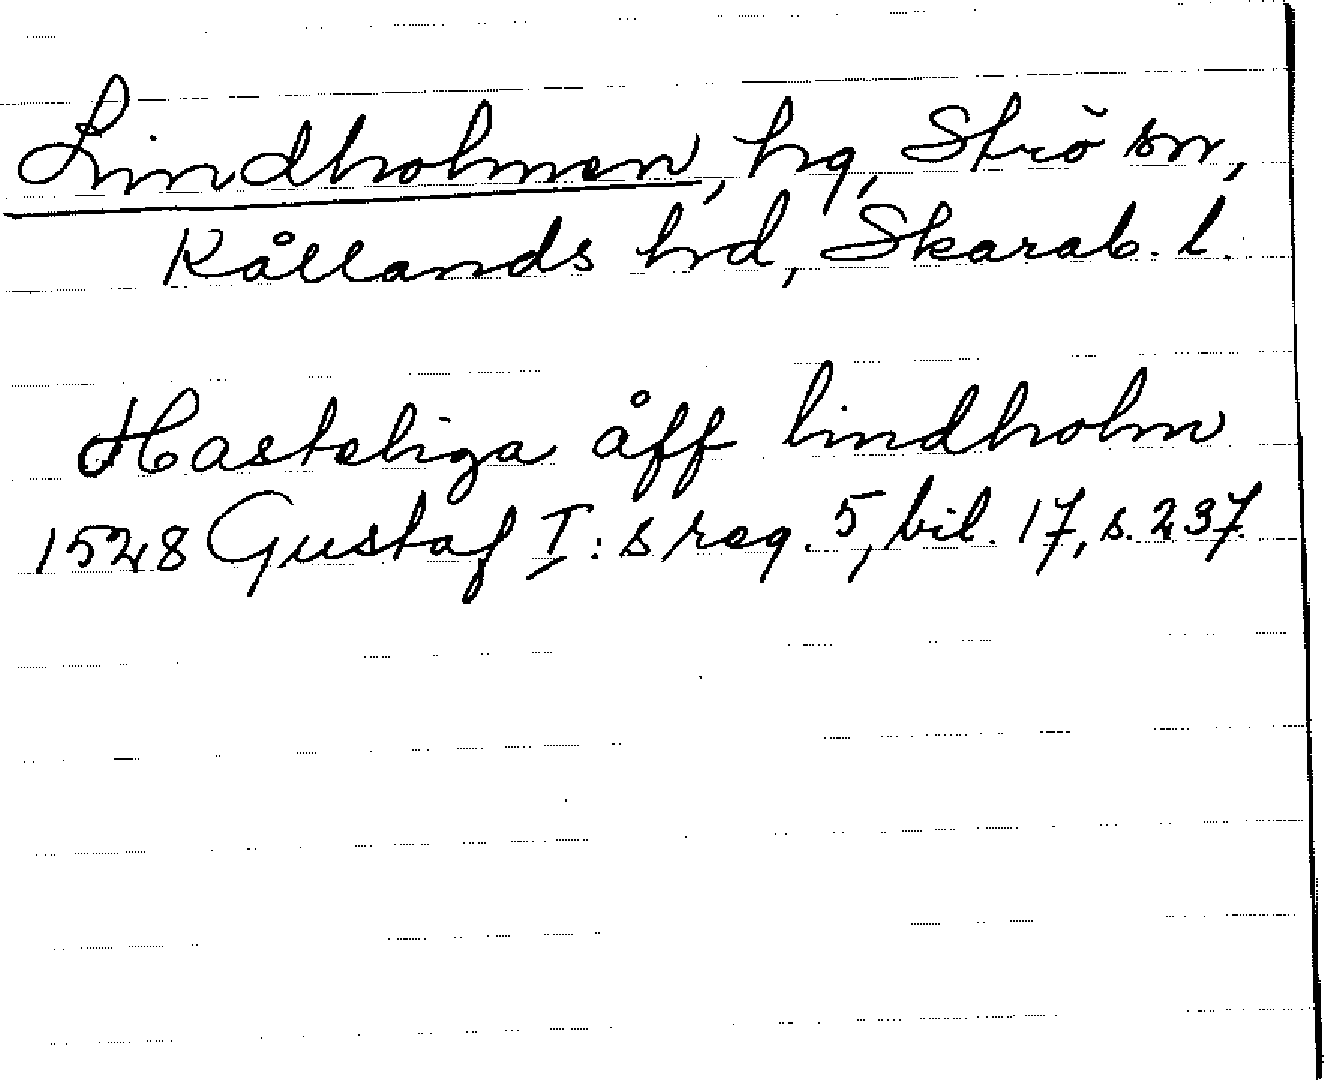 Lindholmen, hg, Strö sn,
Kållands hd, Skarab. l.
Hasteliga åff lindholm
1528 Gustaf I:s reg. 5, bil. 17, s. 237.